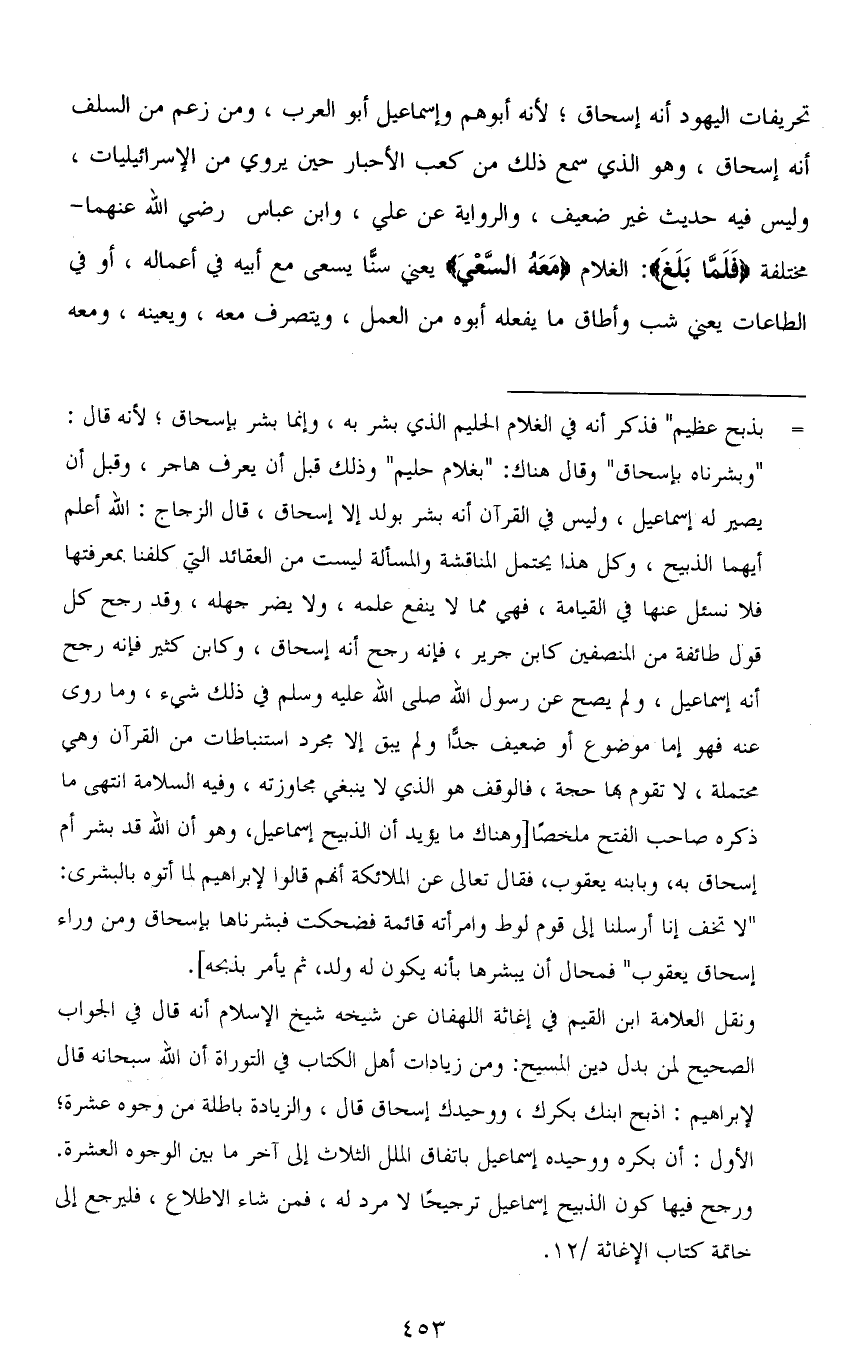 تحريفات اليهود أنه إسحاق ؛ لأنه أبوهم وإسماعيل أبو العرب ، ومن زعم من السلف
أنه إسحاق ، وهو الذي سمع ذلك من كعب الأحبار حين يروي من الإسرائيليات ،
وليس فيه حديث غير ضعيف ، والرواية عن علي ، وابن عباس رضي الله عنهما-
مختلفة ﴿فَلَمَّا بَلَغَ﴾: الغلام ﴿مَعَهُ السَّعْيَ﴾ يعني سنًّا يسعى مع أبيه في أعماله ، أو في
الطاعات يعني شب وأطاق ما يفعله أبوه من العمل ، ويتصرف معه ، ويعينه ، ومعه
= بذبح عظيم" فذكر أنه في الغلام الحليم الذي بشر به ، وإنما بشر بإسحاق ؛ لأنه قال :
"وبشرناه بإسحاق" وقال هناك: "بغلام حليم" وذلك قبل أن يعرف هاجر ، وقبل أن
يصير له إسماعيل ، وليس في القرآن أنه بشر بولد إلا إسحاق ، قال الزجاج : الله أعلم
أيهما الذبيح ، وكل هذا يحتمل المناقشة والمسألة ليست من العقائد التي كلفنا بمعرفتها
فلا نسئل عنها في القيامة ، فهي مما لا ينفع علمه ، ولا يضر جهله ، وقد رجح كل
قول طائفة من المنصفين كابن جرير ، فإنه رجح أنه إسحاق ، وكابن كثير فإنه رجح
أنه إسماعيل ، ولم يصح عن رسول الله صلى الله عليه وسلم في ذلك شيء ، وما روى
عنه فهو إما موضوع أو ضعيف جدًّا ولم يبق إلا مجرد استنباطات من القرآن وهي
محتملة ، لا تقوم بها حجة ، فالوقف هو الذي لا ينبغي مجاوزته ، وفيه السلامة انتهى ما
ذكره صاحب الفتح ملخصًا[وهناك ما يؤيد أن الذبيح إسماعيل، وهو أن الله قد بشر أم
إسحاق به، وبابنه يعقوب، فقال تعالى عن الملائكة أنهم قالوا لإبراهيم لما أتوه بالبشرى:
"لا تخف إنا أرسلنا إلى قوم لوط وامرأته قائمة فضحكت فبشرناها بإسحاق ومن وراء
إسحاق يعقوب" فمحال أن يبشرها بأنه يكون له ولد، ثم يأمر بذبحه].
ونقل العلامة ابن القيم في إغاثة اللهفان عن شيخه شيخ الإسلام أنه قال في الجواب
الصحيح لمن بدل دين المسيح: ومن زيادات أهل الكتاب في التوراة أن الله سبحانه قال
لإبراهيم : اذبح ابنك بكرك ، ووحيدك إسحاق قال ، والزيادة باطلة من وجوه عشرة؛
الأول : أن بكره ووحيده إسماعيل باتفاق الملل الثلاث إلى آخر ما بين الوجوه العشرة.
ورجح فيها كون الذبيح إسماعيل ترجيحًا لا مرد له ، فمن شاء الاطلاع ، فليرجع إلى
خاتمة كتاب الإغاثة /١٢.
٤٥٣